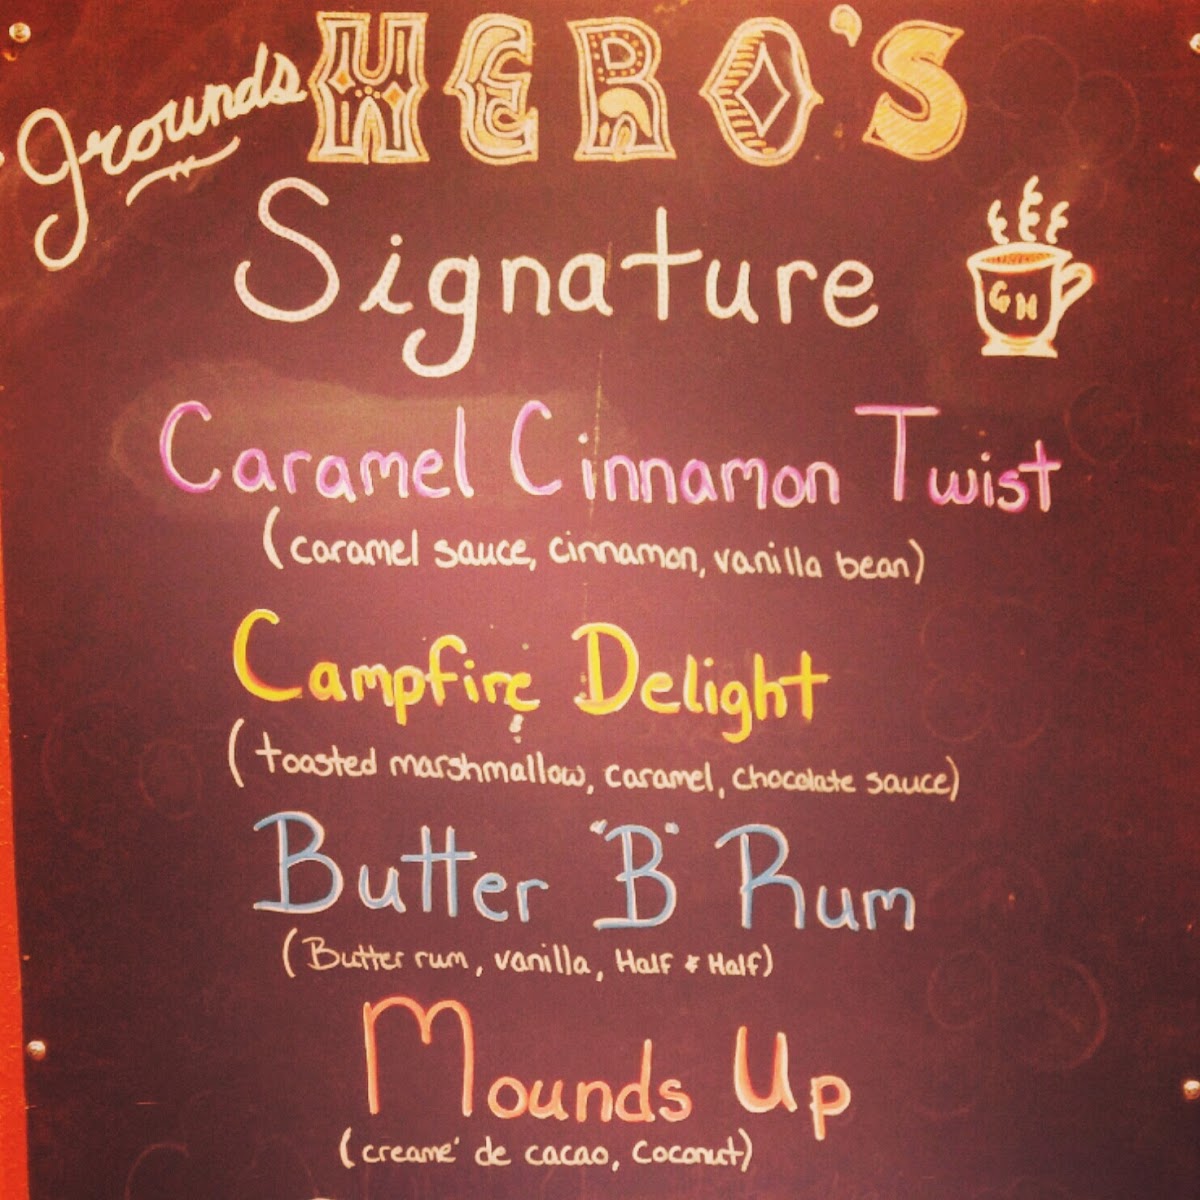 Grounds HERO'S
Signature
GH
Caramel Cinnamon Twist
(caramel sauce, cinnamon, vanilla bean)
Campfire Delight
(toasted marshmallow, caramel, chocolate sauce)
Butter "B" Rum
(Butter rum, vanilla, Half & Half)
Mounds Up
(creamé de cacao, coconut)